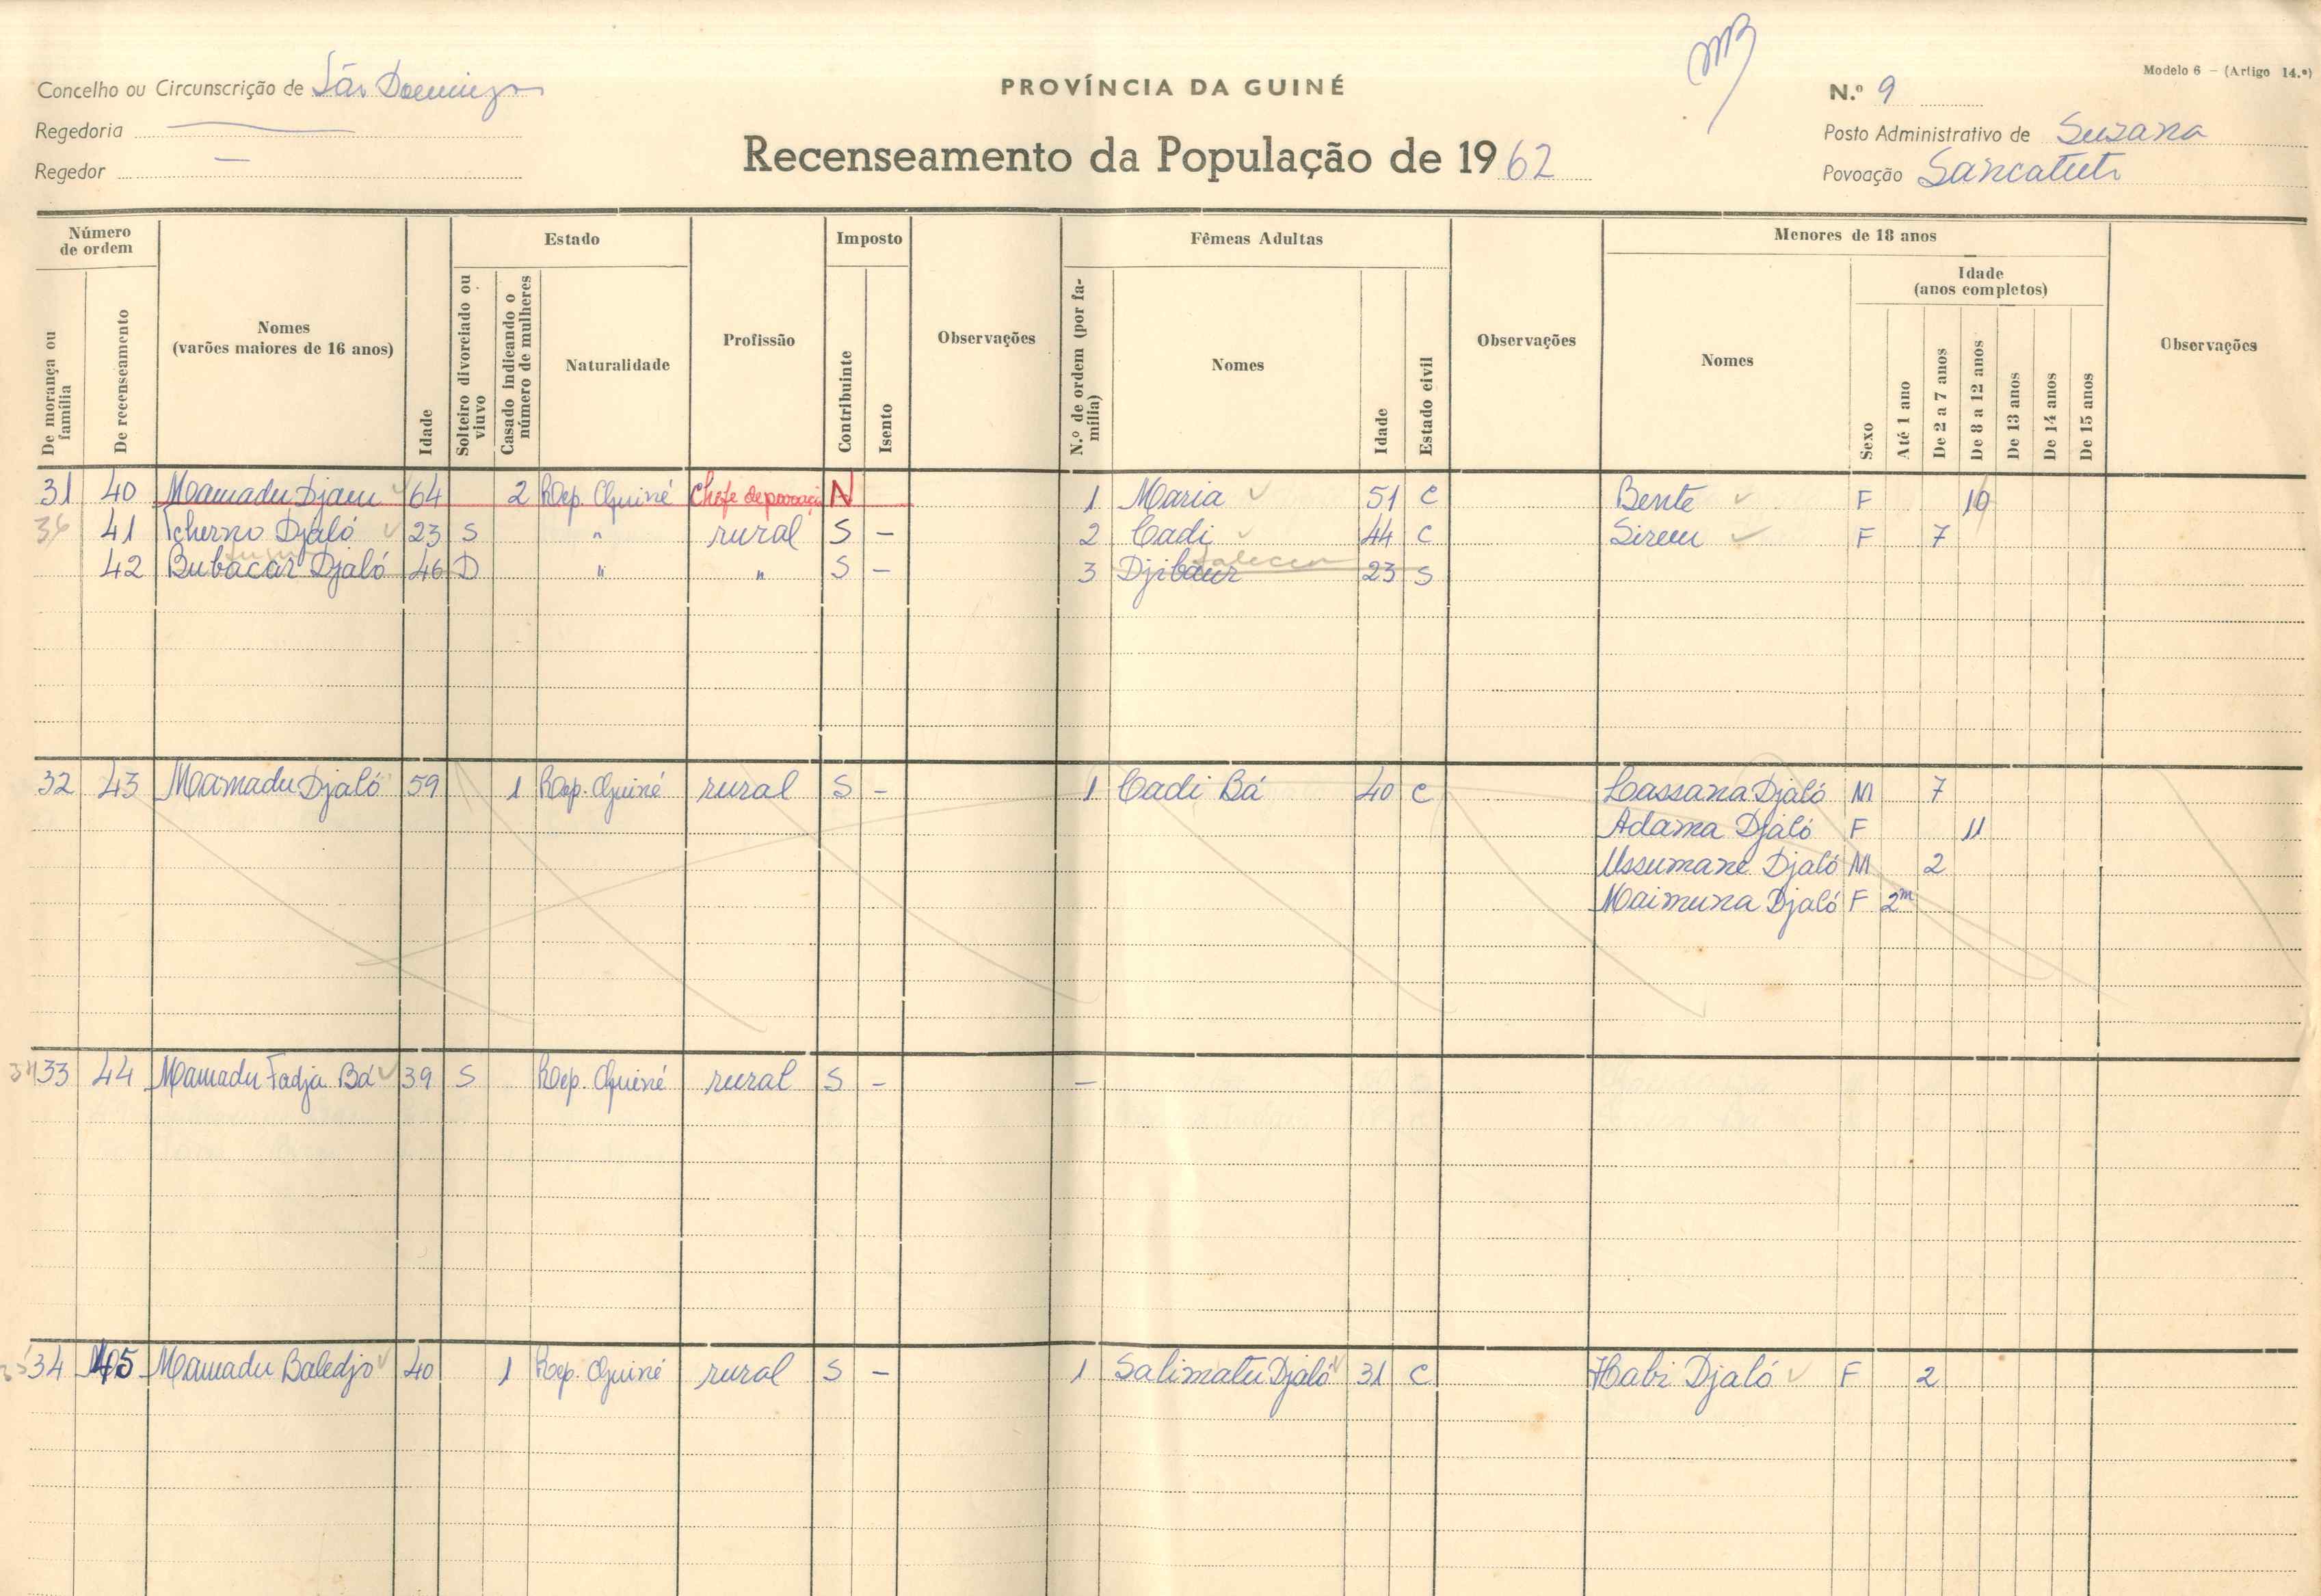 Modelo 6 – (Artigo 14.º)
Concelho ou Circunscrição de São Domingos
PROVÍNCIA DA GUINÉ
N.º 9
Regedoria —
Recenseamento da População de 1962
Posto Administrativo de Suzana
Regedor —
Povoação Sancatuti
Número de ordem
Estado
Imposto
Fêmeas Adultas
Menores de 18 anos
De morança ou família
De recenseamento
Nomes (varões maiores de 16 anos)
Idade
Solteiro divorciado ou viuvo
Casado indicando o número de mulheres
Naturalidade
Profissão
Contribuinte
Isento
Observações
N.º de ordem (por família)
Nomes
Idade
Estado civil
Observações
Nomes
Sexo
Idade (anos completos)
Até 1 ano
De 2 a 7 anos
De 8 a 12 anos
De 13 anos
De 14 anos
De 15 anos
Observações
31 40 Mamadu Djau 64 2 Rep. Guiné Chefe de povoação N 1 Maria 51 C Bente F 10
36 41 Tcherno Djaló 23 S " rural S – 2 Cadi 44 C Sireu F 7
42 Bubacar Djaló 46 D " " S – 3 Djibaur faleceu 23 S
32 43 Mamadu Djaló 59 1 Rep. Guiné rural S – 1 Cadi Bá 40 C Lassana Djaló M 7
Adama Djaló F 11
Ussumane Djaló M 2
Maimuna Djaló F 2m
33 44 Mamadu Fadja Bá 39 S Rep. Guiné rural S – —
34 45 Mamadu Baledjo 40 1 Rep. Guiné rural S – 1 Salimatu Djaló 31 C Habi Djaló F 2